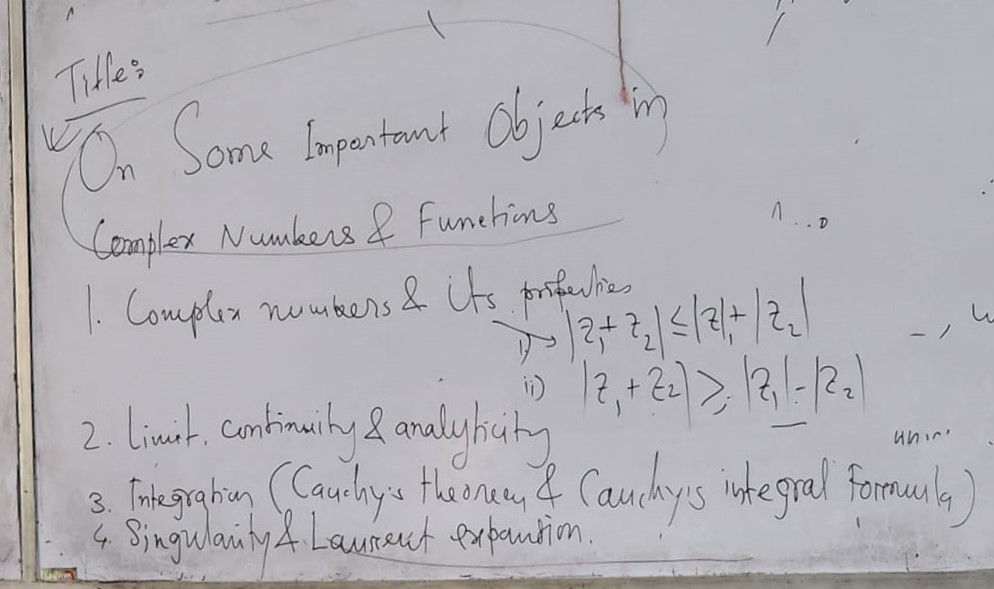 Title:
On Some Important Objects in
Complex Numbers & Functions
1. Complex numbers & its properties
i) |z₁+z₂| ≤ |z₁|+|z₂|
ii) |z₁+z₂| ≥ |z₁|-|z₂|
2. Limit, continuity & analyticity
3. Integration (Cauchy's theorem & Cauchy's integral Formula)
4. Singularity & Laurent expansion.